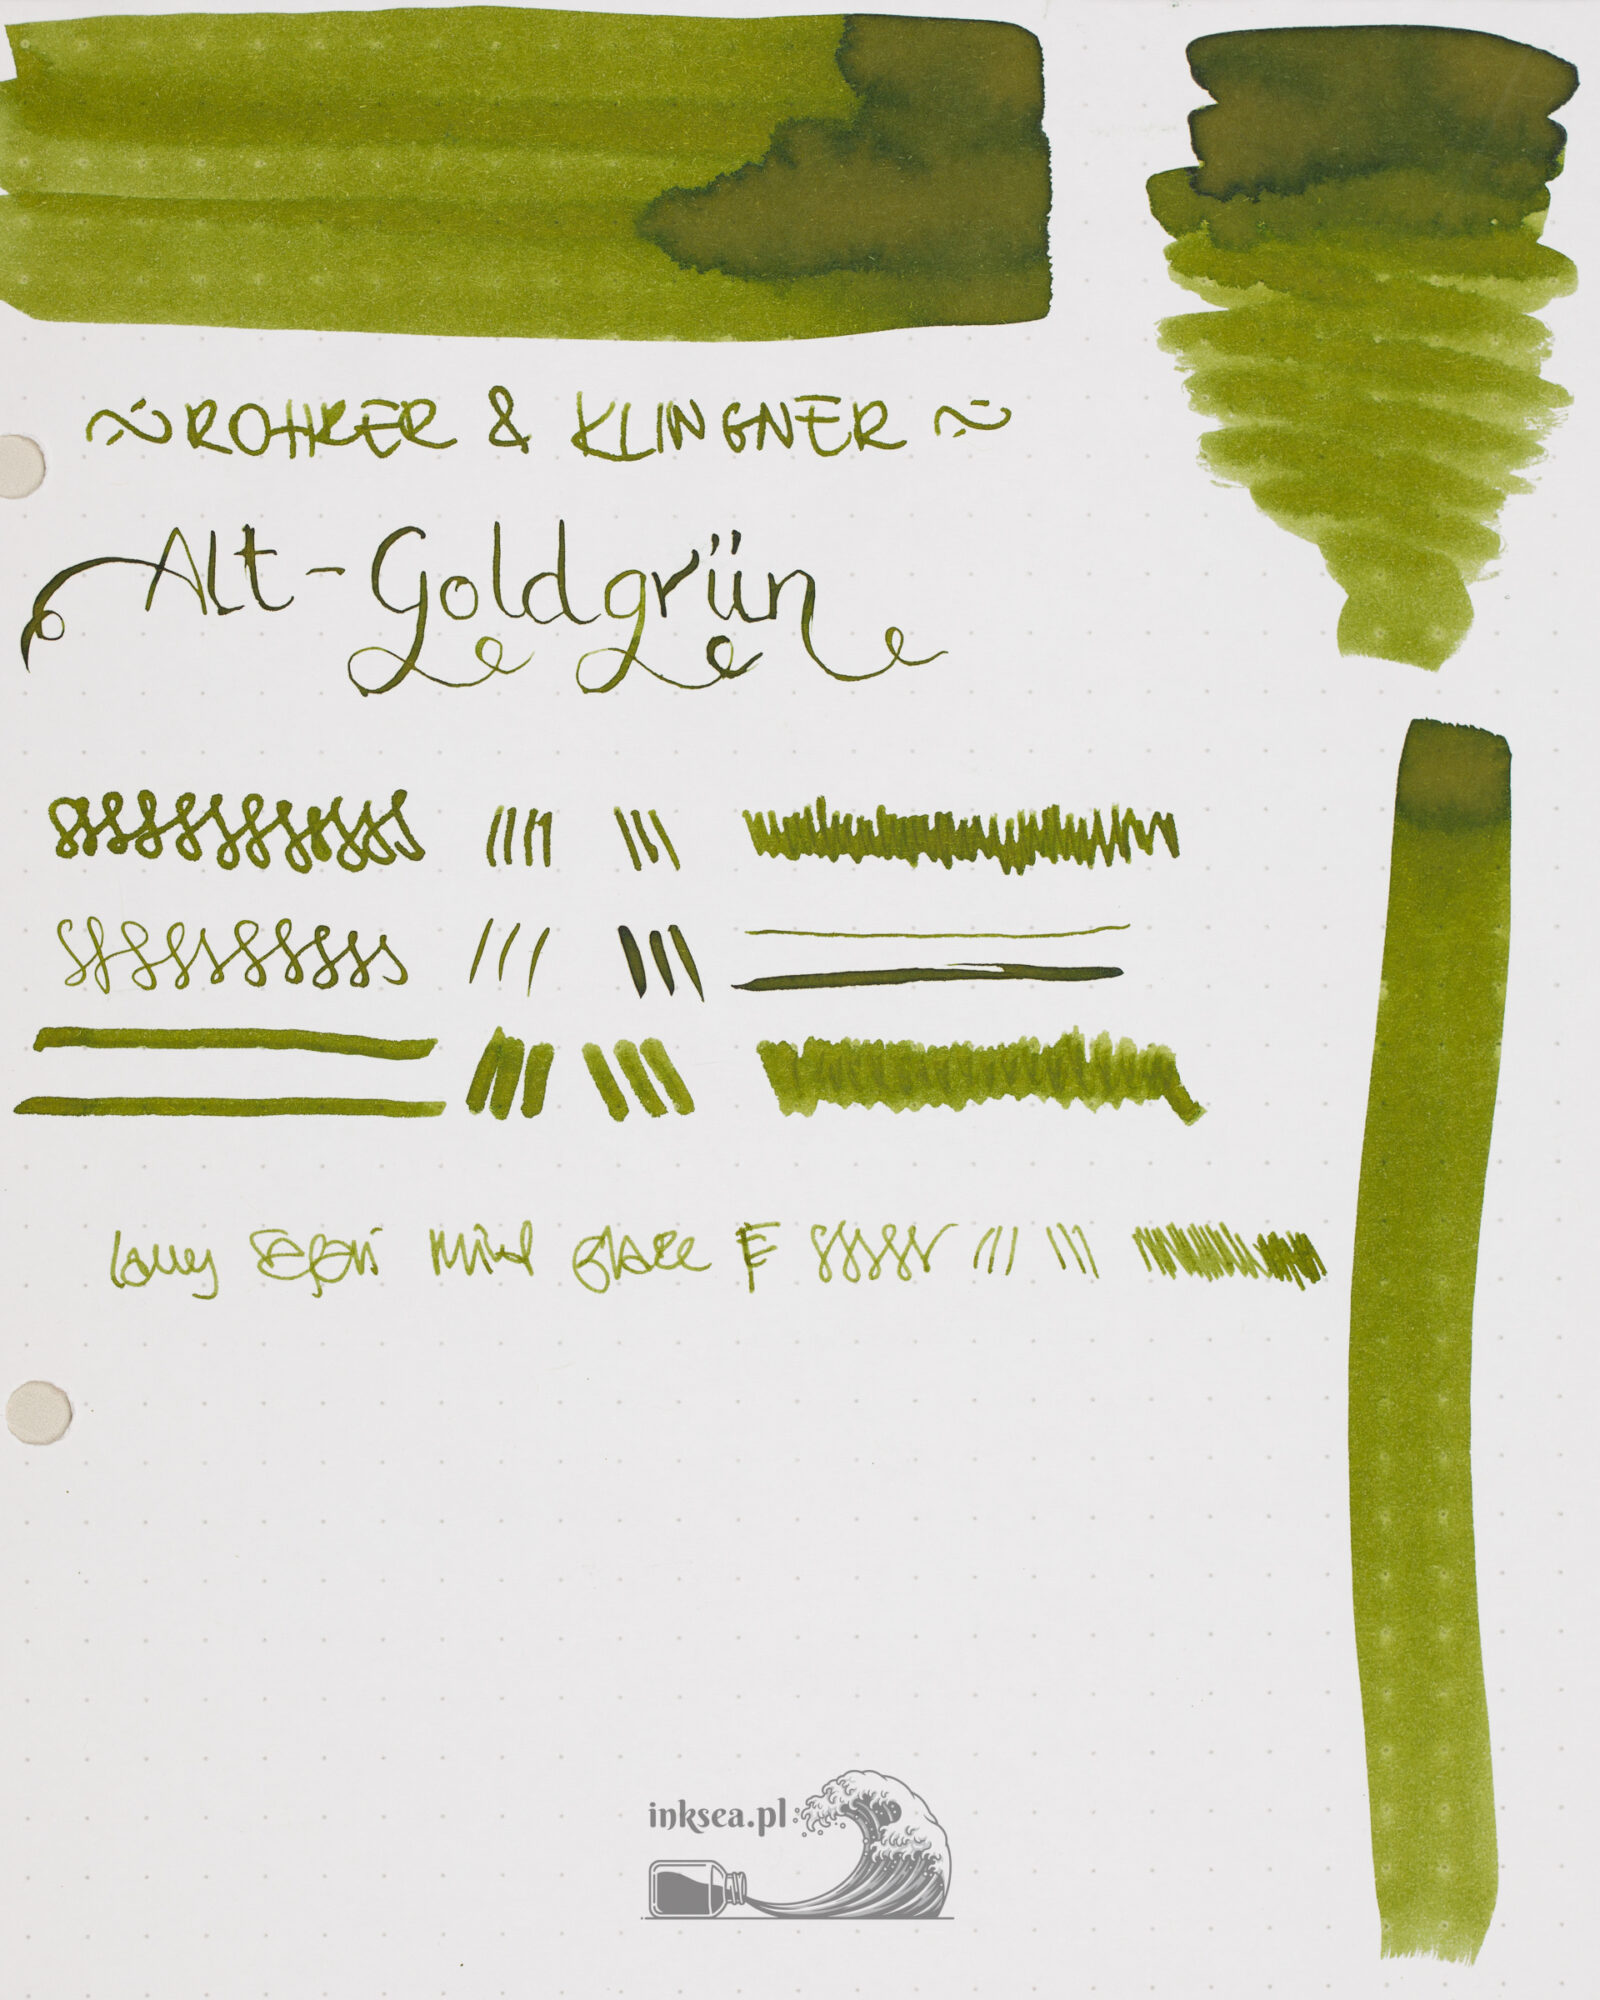 ~ROHRER & KLINGNER~
Alt-Goldgrün
Lamy Safari Mint Glace F
inksea.pl